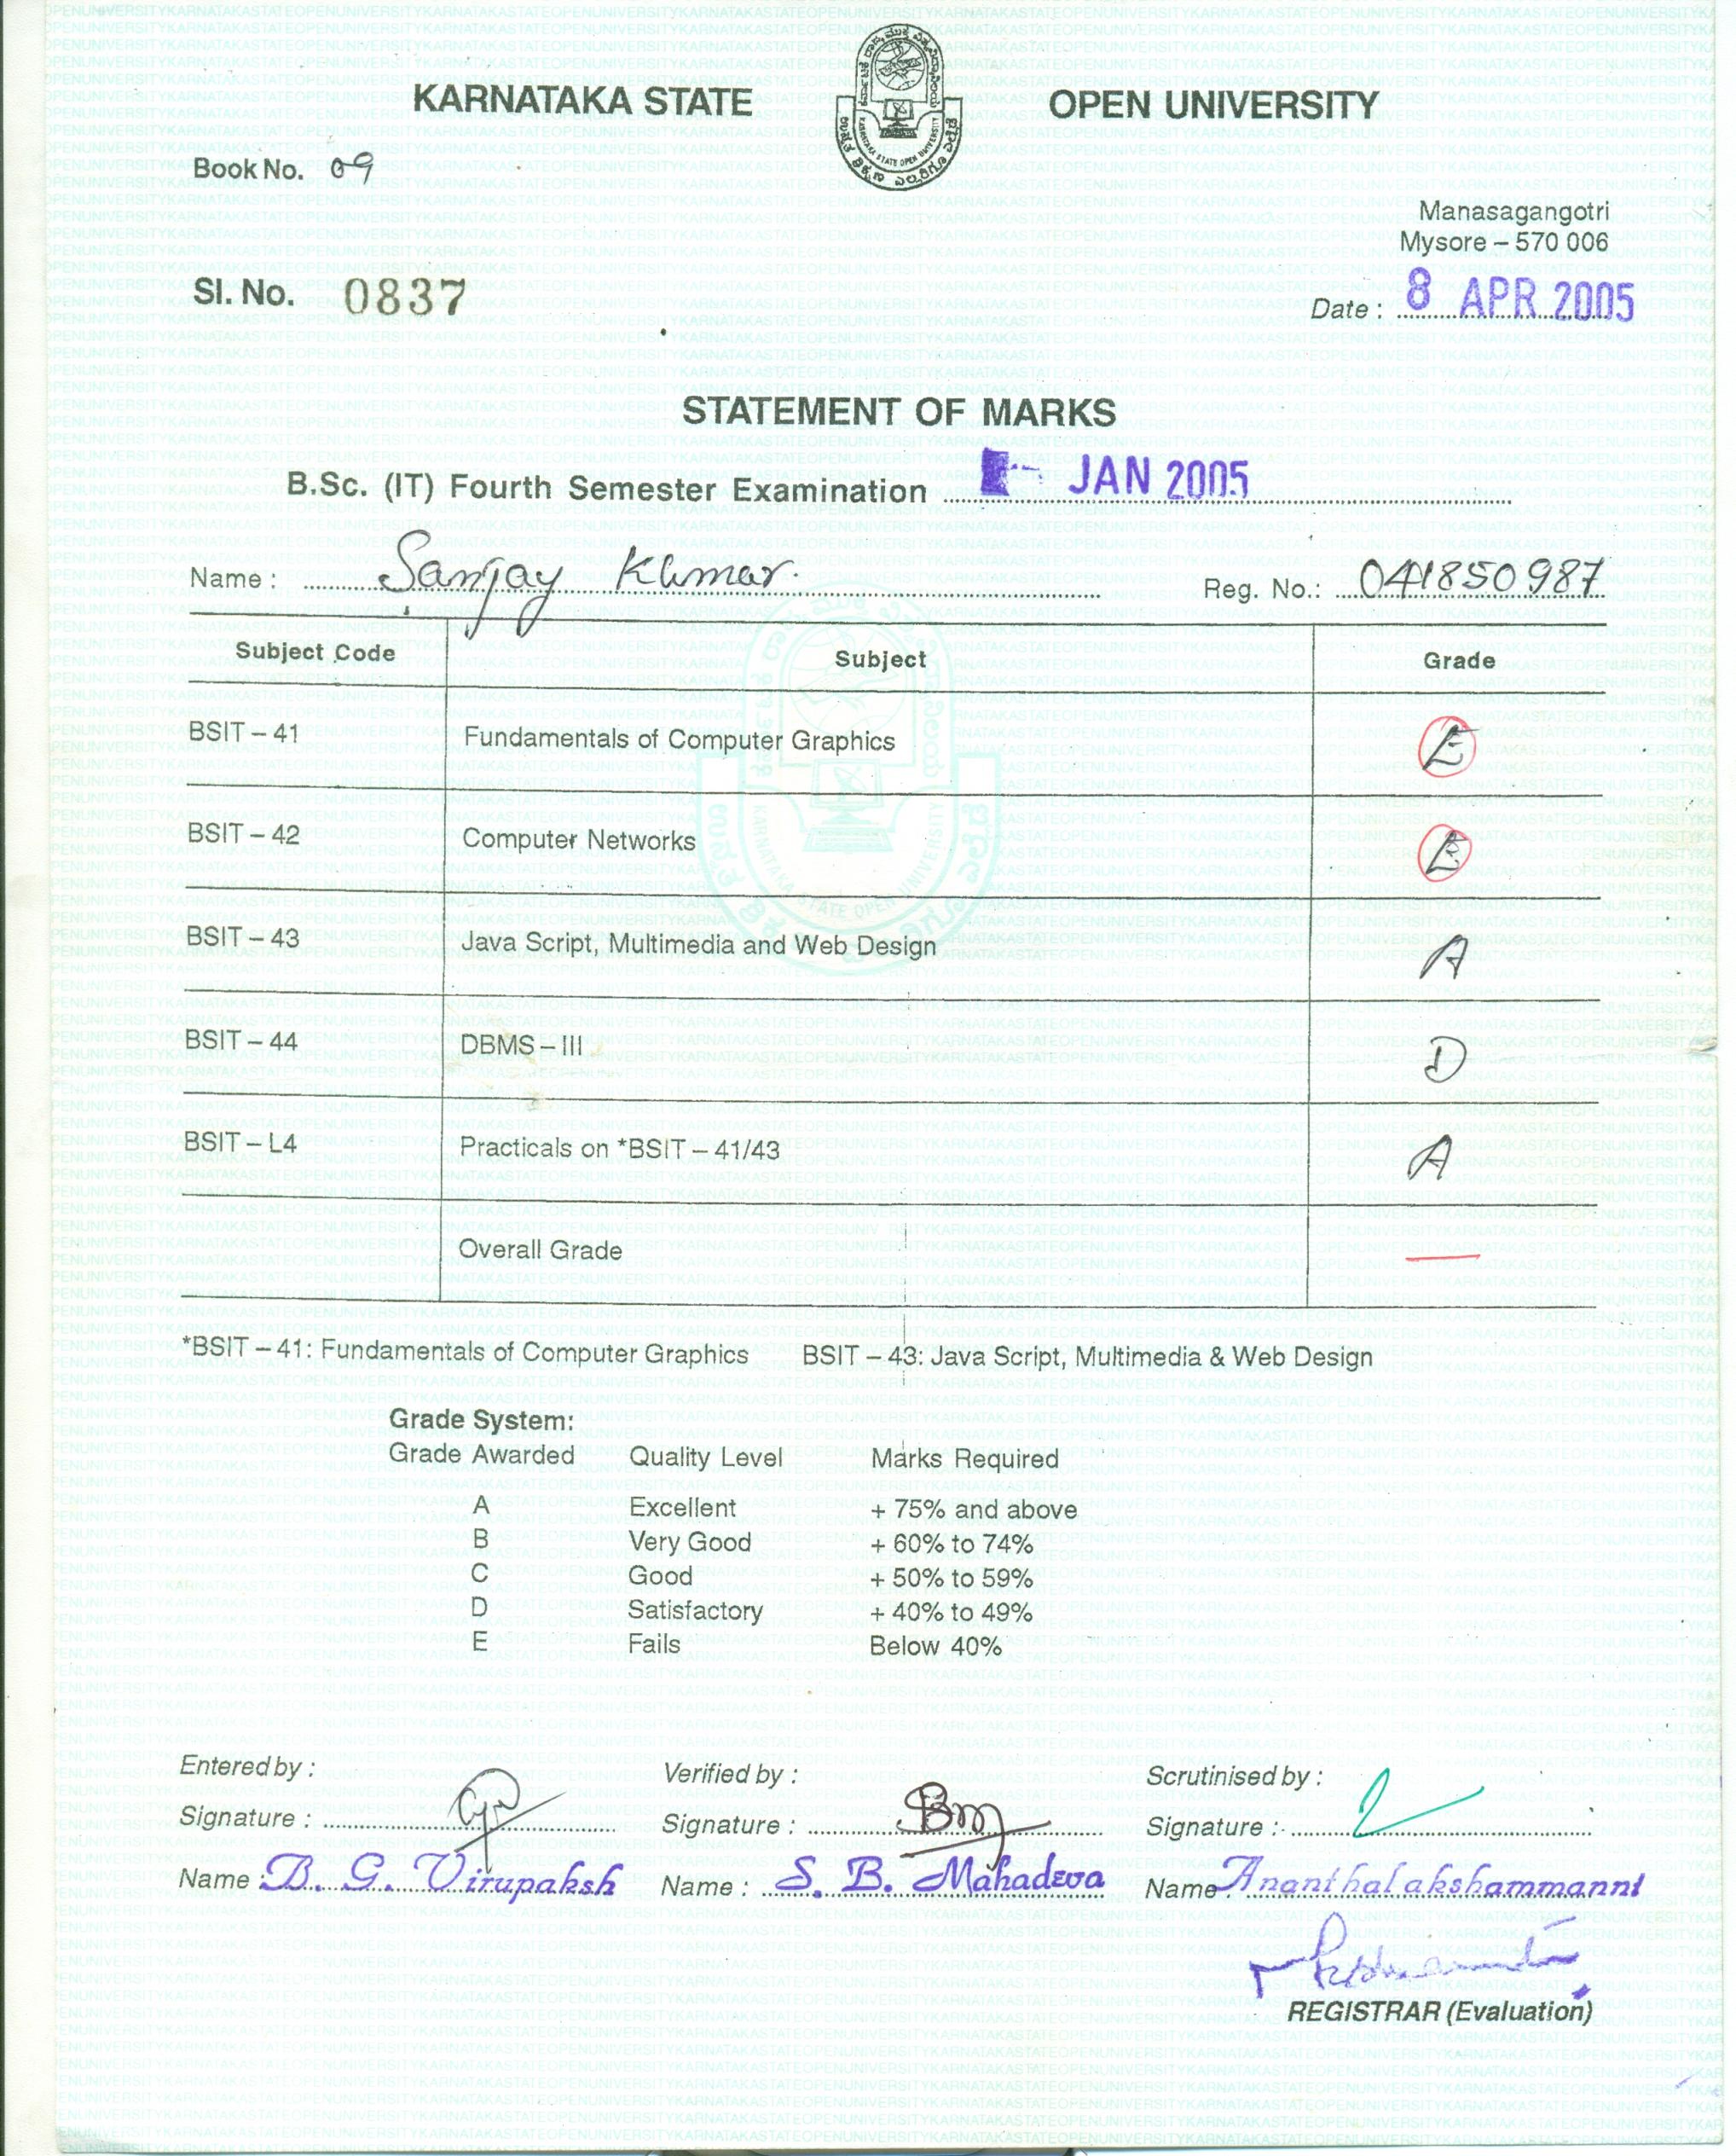 KARNATAKA STATE OPEN UNIVERSITY
Book No. 09
Manasagangotri
Mysore – 570 006
Sl. No. 0837
Date : 8 APR 2005
STATEMENT OF MARKS
B.Sc. (IT) Fourth Semester Examination JAN 2005
Name : Sanjay Kumar. Reg. No.: 041850987
Subject Code Subject Grade
BSIT – 41 Fundamentals of Computer Graphics E
BSIT – 42 Computer Networks E
BSIT – 43 Java Script, Multimedia and Web Design A
BSIT – 44 DBMS – III D
BSIT – L4 Practicals on *BSIT – 41/43 A
Overall Grade —
*BSIT – 41: Fundamentals of Computer Graphics BSIT – 43: Java Script, Multimedia & Web Design
Grade System:
Grade Awarded Quality Level Marks Required
A Excellent + 75% and above
B Very Good + 60% to 74%
C Good + 50% to 59%
D Satisfactory + 40% to 49%
E Fails Below 40%
Entered by : Verified by : Scrutinised by :
Signature : Signature : Signature :
Name : B. G. Virupaksh Name : S. B. Mahadeva Name : Ananthalakshammanni
REGISTRAR (Evaluation)